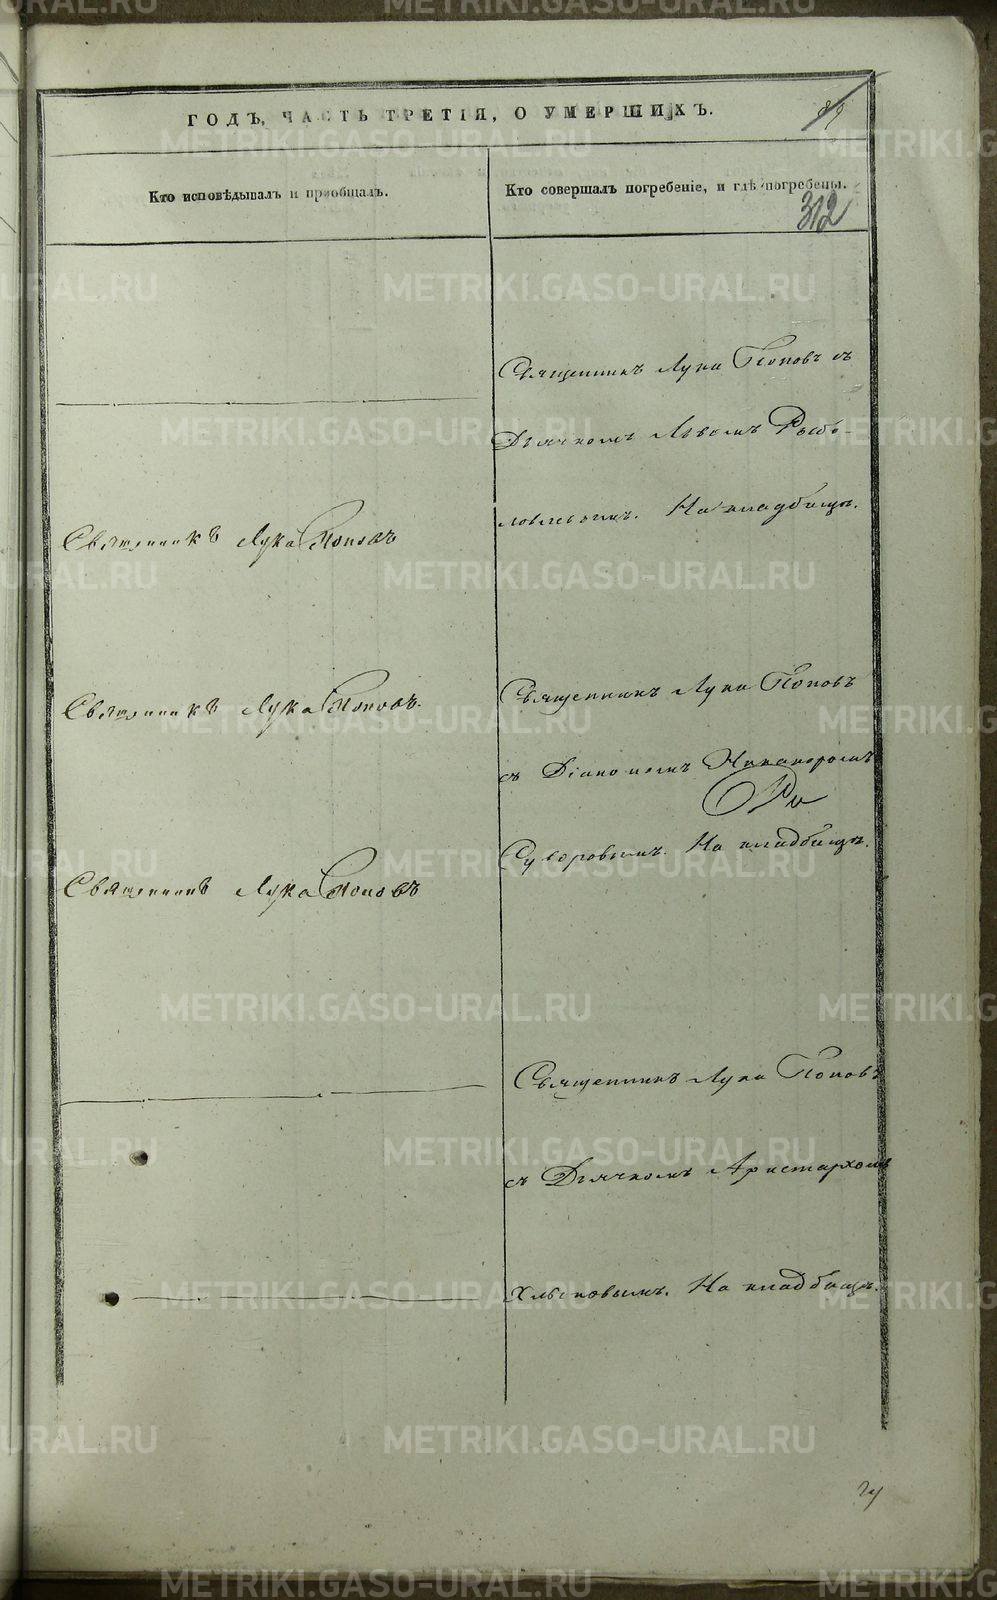 ГОДЪ, ЧАСТЬ ТРЕТІЯ, О УМЕРШИХЪ.
312
Кто исповѣдывалъ и пріобщалъ.
Кто совершалъ погребеніе, и гдѣ погребены.
Священникъ Лука Поповъ
Священникъ Лука Поповъ.
Священникъ Лука Поповъ
Священникъ Лука Поповъ съ
Дьячкомъ Львомъ Рыбо-
ловлевымъ. На кладбищѣ.
Священникъ Лука Поповъ
съ Діакономъ Никаноромъ
Суворовымъ. На кладбищѣ.
Священникъ Лука Поповъ
съ Дьячкомъ Аристархомъ
На кладбищѣ.
METRIKI.GASO-URAL.RU